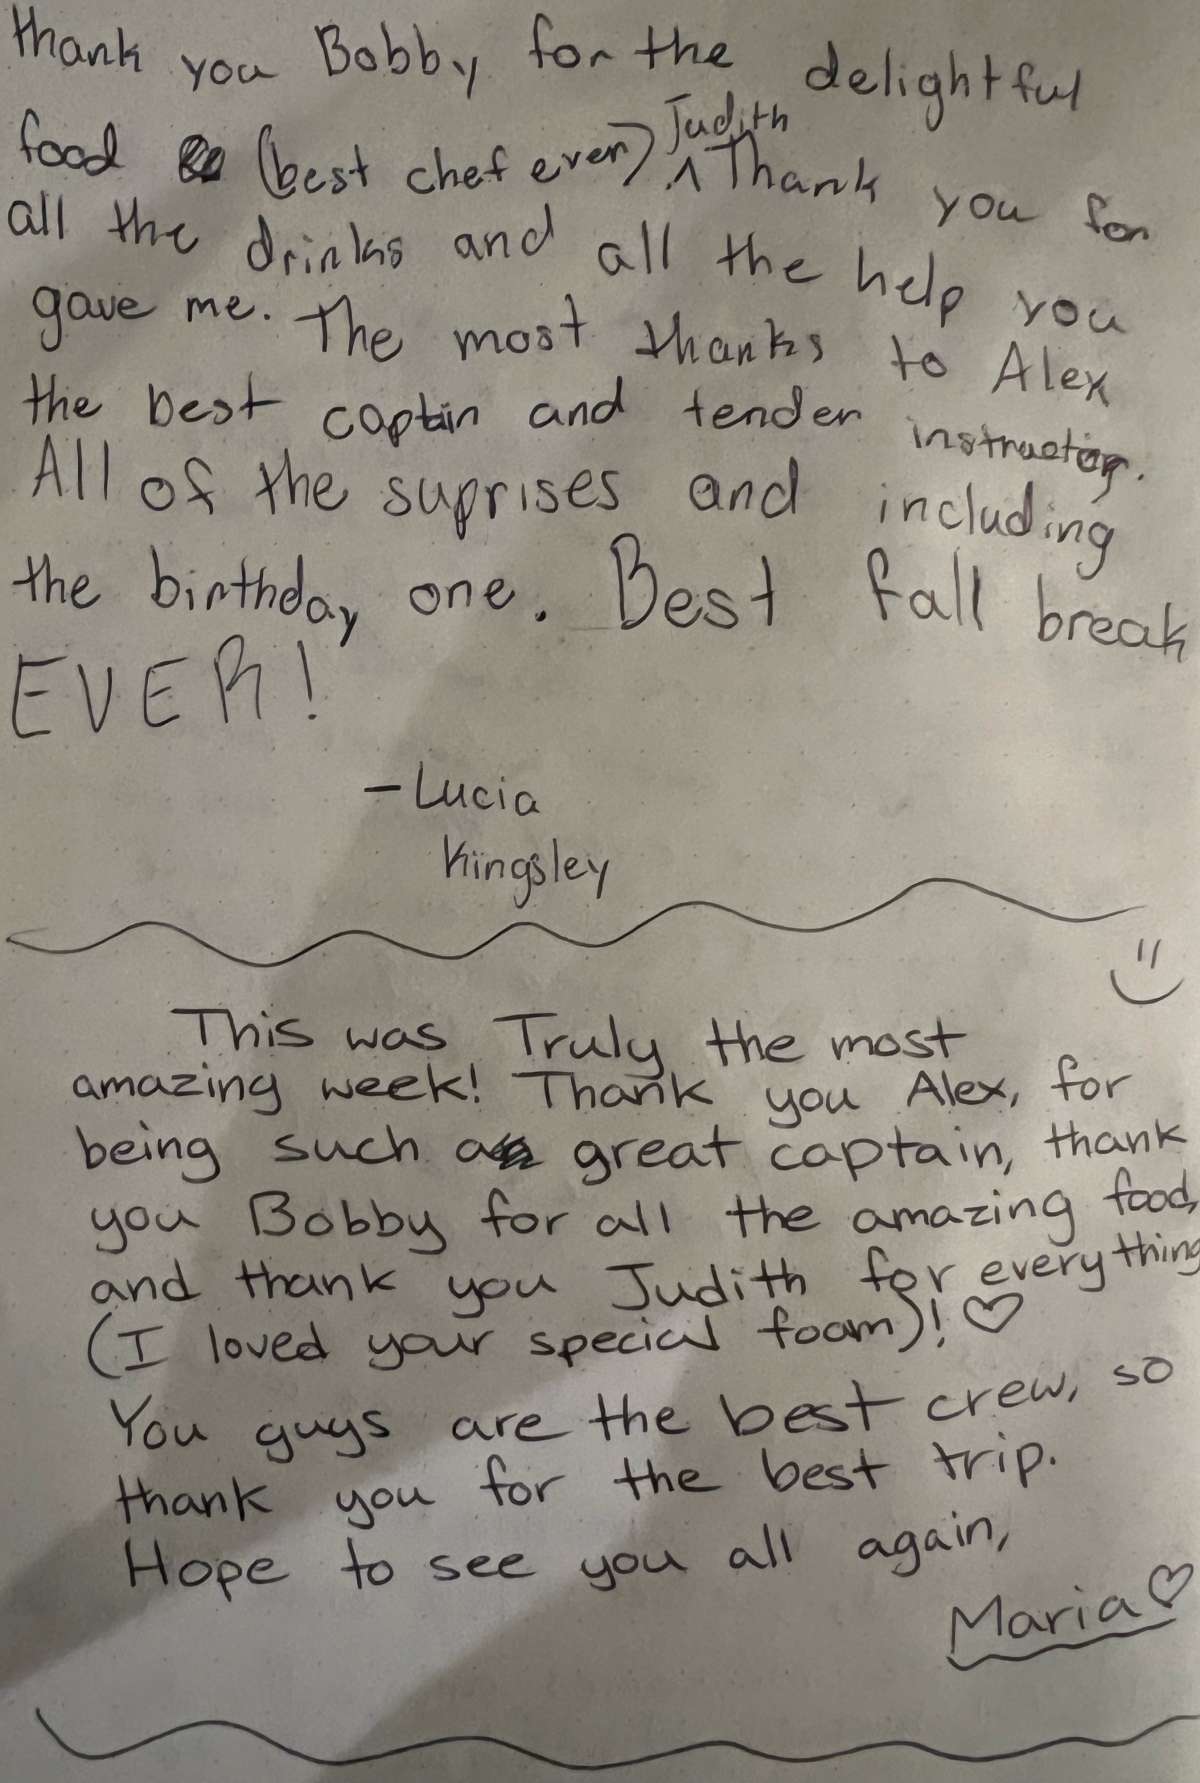 thank you Bobby for the delightful
food (best chef ever). Judith Thank you for
all the drinks and all the help you
gave me. The most thanks to Alex
the best captin and tender instructor.
All of the suprises and including
the birthday one. Best fall break
EVER!
- Lucia
Kingsley
This was Truly the most
amazing week! Thank you Alex, for
being such a great captain, thank
you Bobby for all the amazing food,
and thank you Judith for everything
(I loved your special foam)! ♡
You guys are the best crew, so
thank you for the best trip.
Hope to see you all again,
Maria ♡